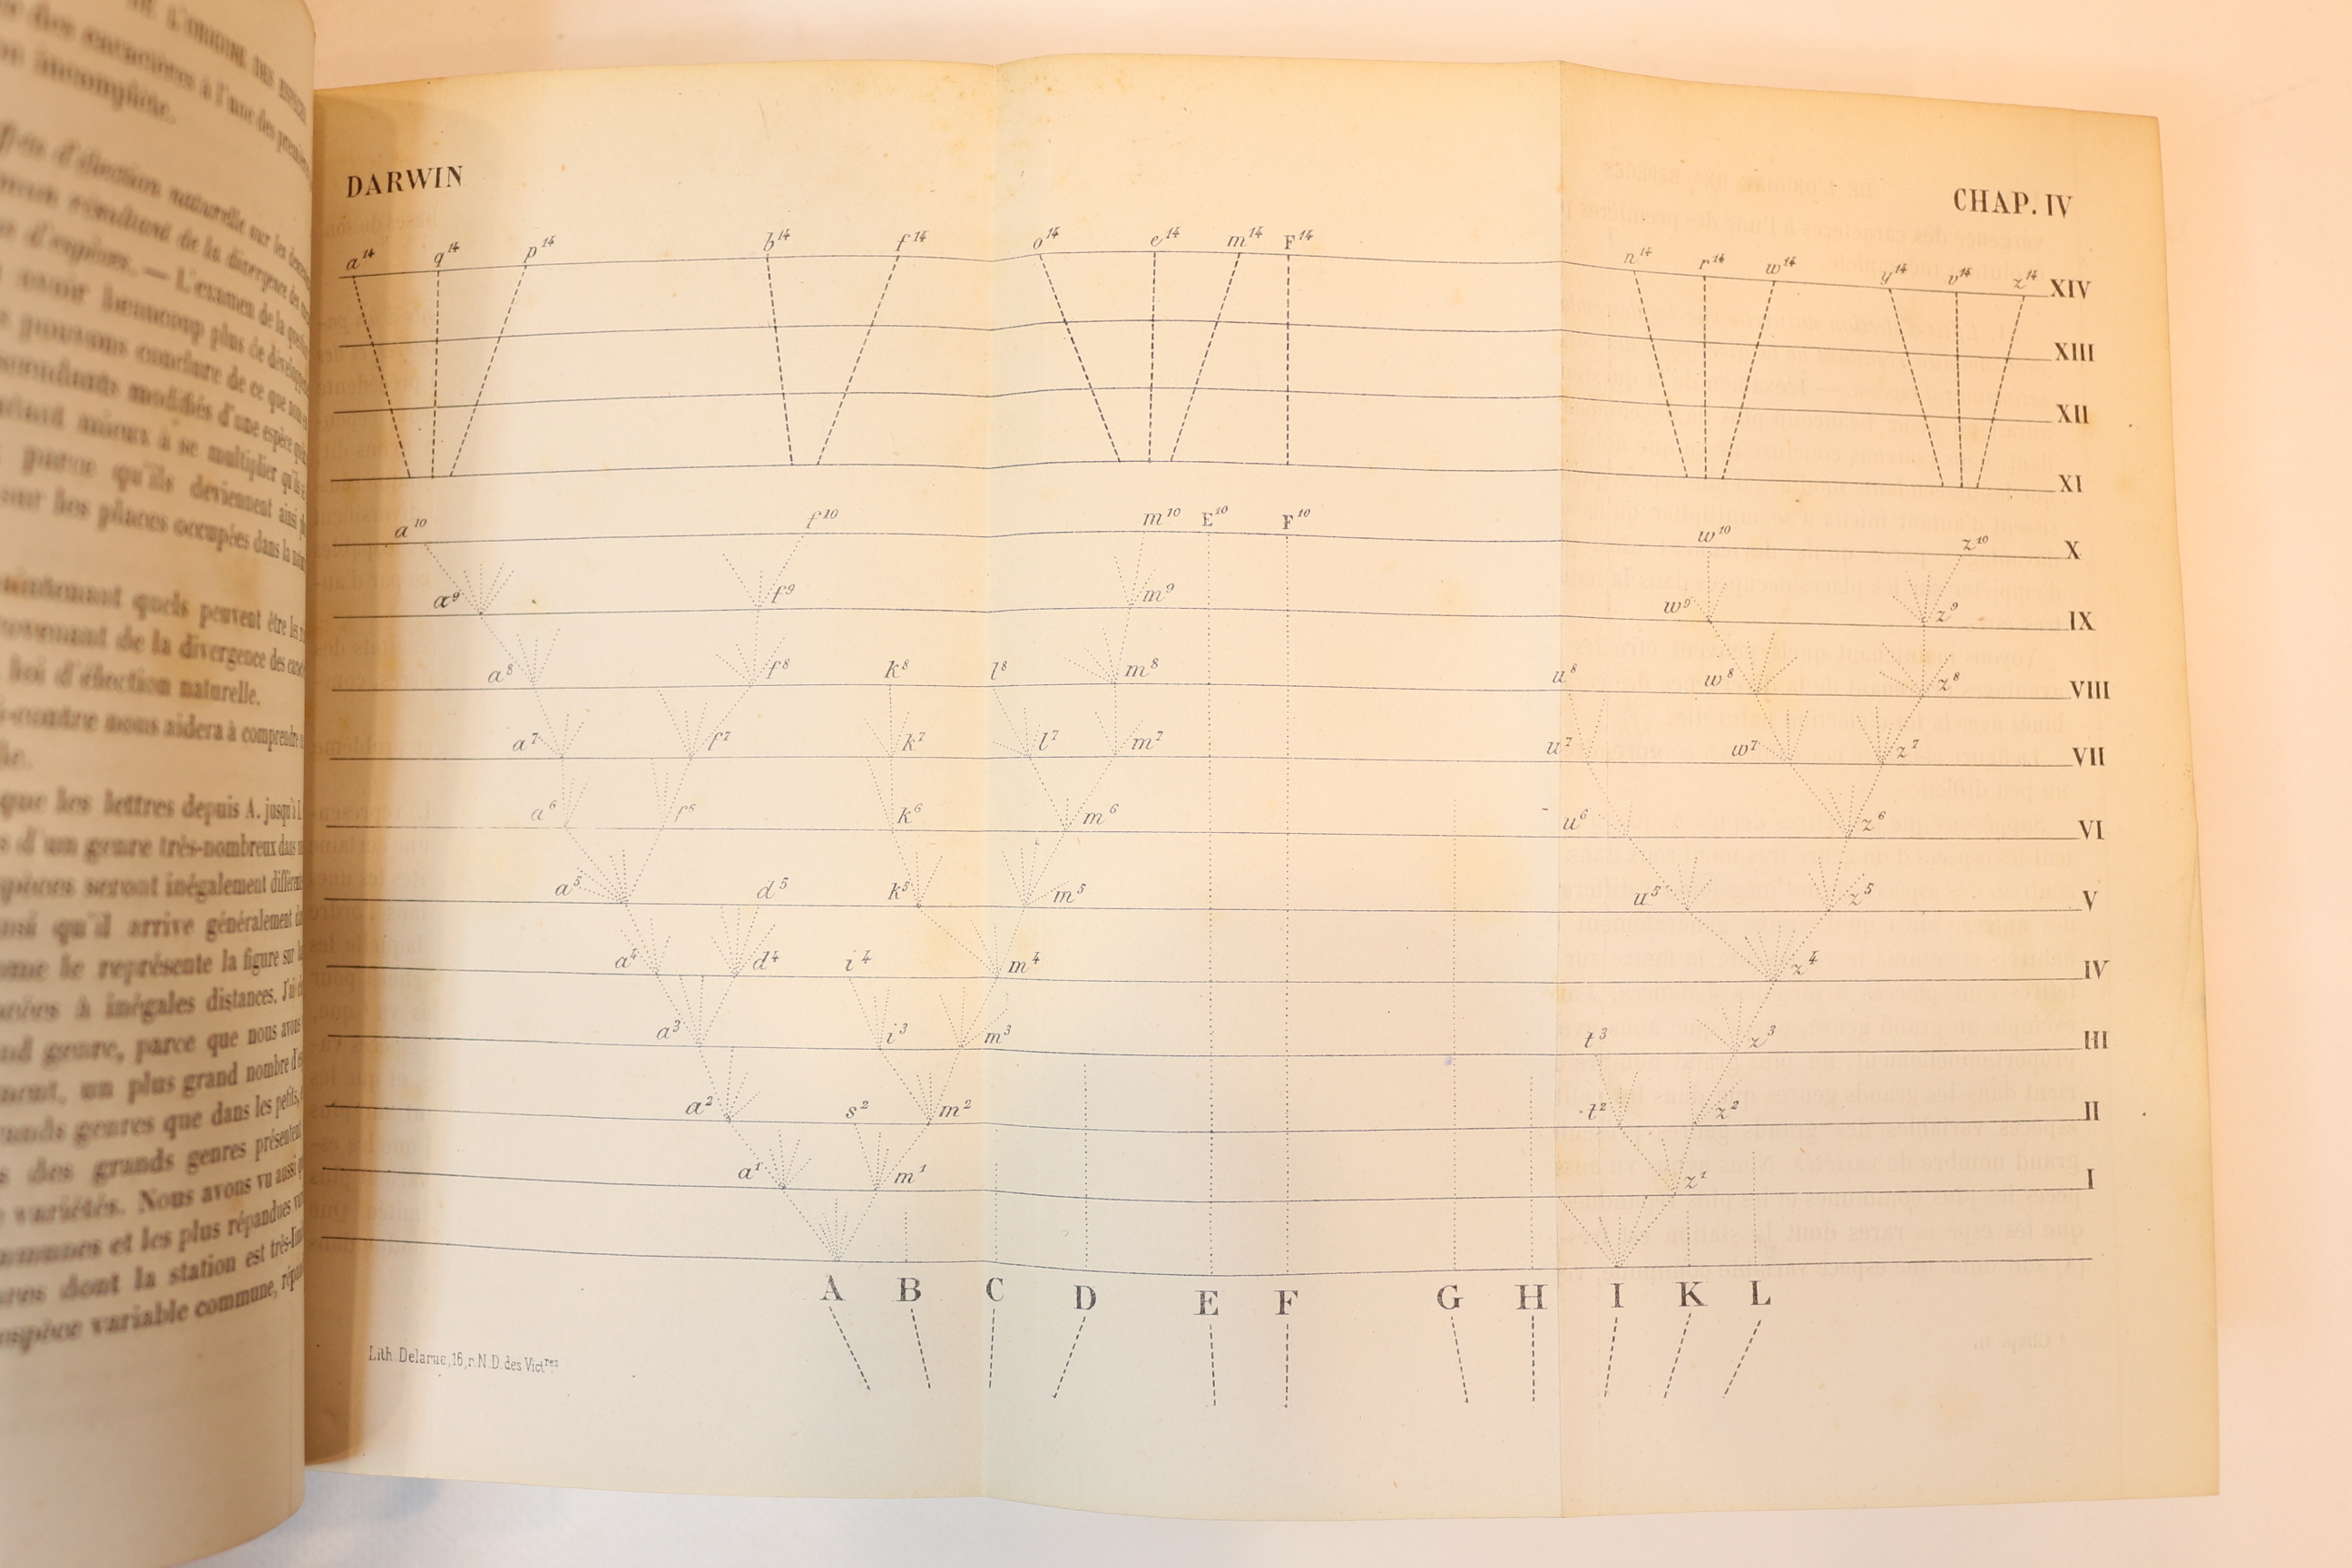 DE L'ORIGINE DES ESPÈCES
des caractères à l'une des
incomplète.
d'élection naturelle sur les
résultant de la divergence des
d'espèces. — L'examen de la
avoir beaucoup plus de
pouvons conclure de ce que nous
modifiés d'une espèce
mieux à se multiplier qu'ils
parce qu'ils deviennent ainsi
les places occupées dans la
maintenant quels peuvent être les
provenant de la divergence des
loi d'élection naturelle.
ci-contre nous aidera à comprendre
que les lettres depuis A. jusqu'à L
d'un genre très-nombreux dans
espèces seront inégalement
ainsi qu'il arrive généralement
comme le représente la figure sur
à inégales distances. J'ai
genre, parce que nous avons
un plus grand nombre
grands genres que dans les petits,
des grands genres présentent
variétés. Nous avons vu aussi
communes et les plus répandues
dont la station est
espèce variable commune,
DARWIN
CHAP. IV
a¹⁴ q¹⁴ p¹⁴ b¹⁴ f¹⁴ o¹⁴ e¹⁴ m¹⁴ F¹⁴ n¹⁴ r¹⁴ w¹⁴ y¹⁴ v¹⁴ z¹⁴ XIV
XIII
XII
XI
a¹⁰ f¹⁰ m¹⁰ E¹⁰ F¹⁰ w¹⁰ z¹⁰ X
a⁹ f⁹ m⁹ w⁹ z⁹ IX
a⁸ f⁸ k⁸ l⁸ m⁸ u⁸ w⁸ z⁸ VIII
a⁷ f⁷ k⁷ l⁷ m⁷ u⁷ w⁷ z⁷ VII
a⁶ f⁶ k⁶ m⁶ u⁶ z⁶ VI
a⁵ d⁵ k⁵ m⁵ u⁵ z⁵ V
a⁴ d⁴ i⁴ m⁴ z⁴ IV
a³ i³ m³ t³ z³ III
a² s² m² t² z² II
a¹ m¹ z¹ I
A B C D E F G H I K L
Lith. Delarue, 16, r. N. D. des Vict^res